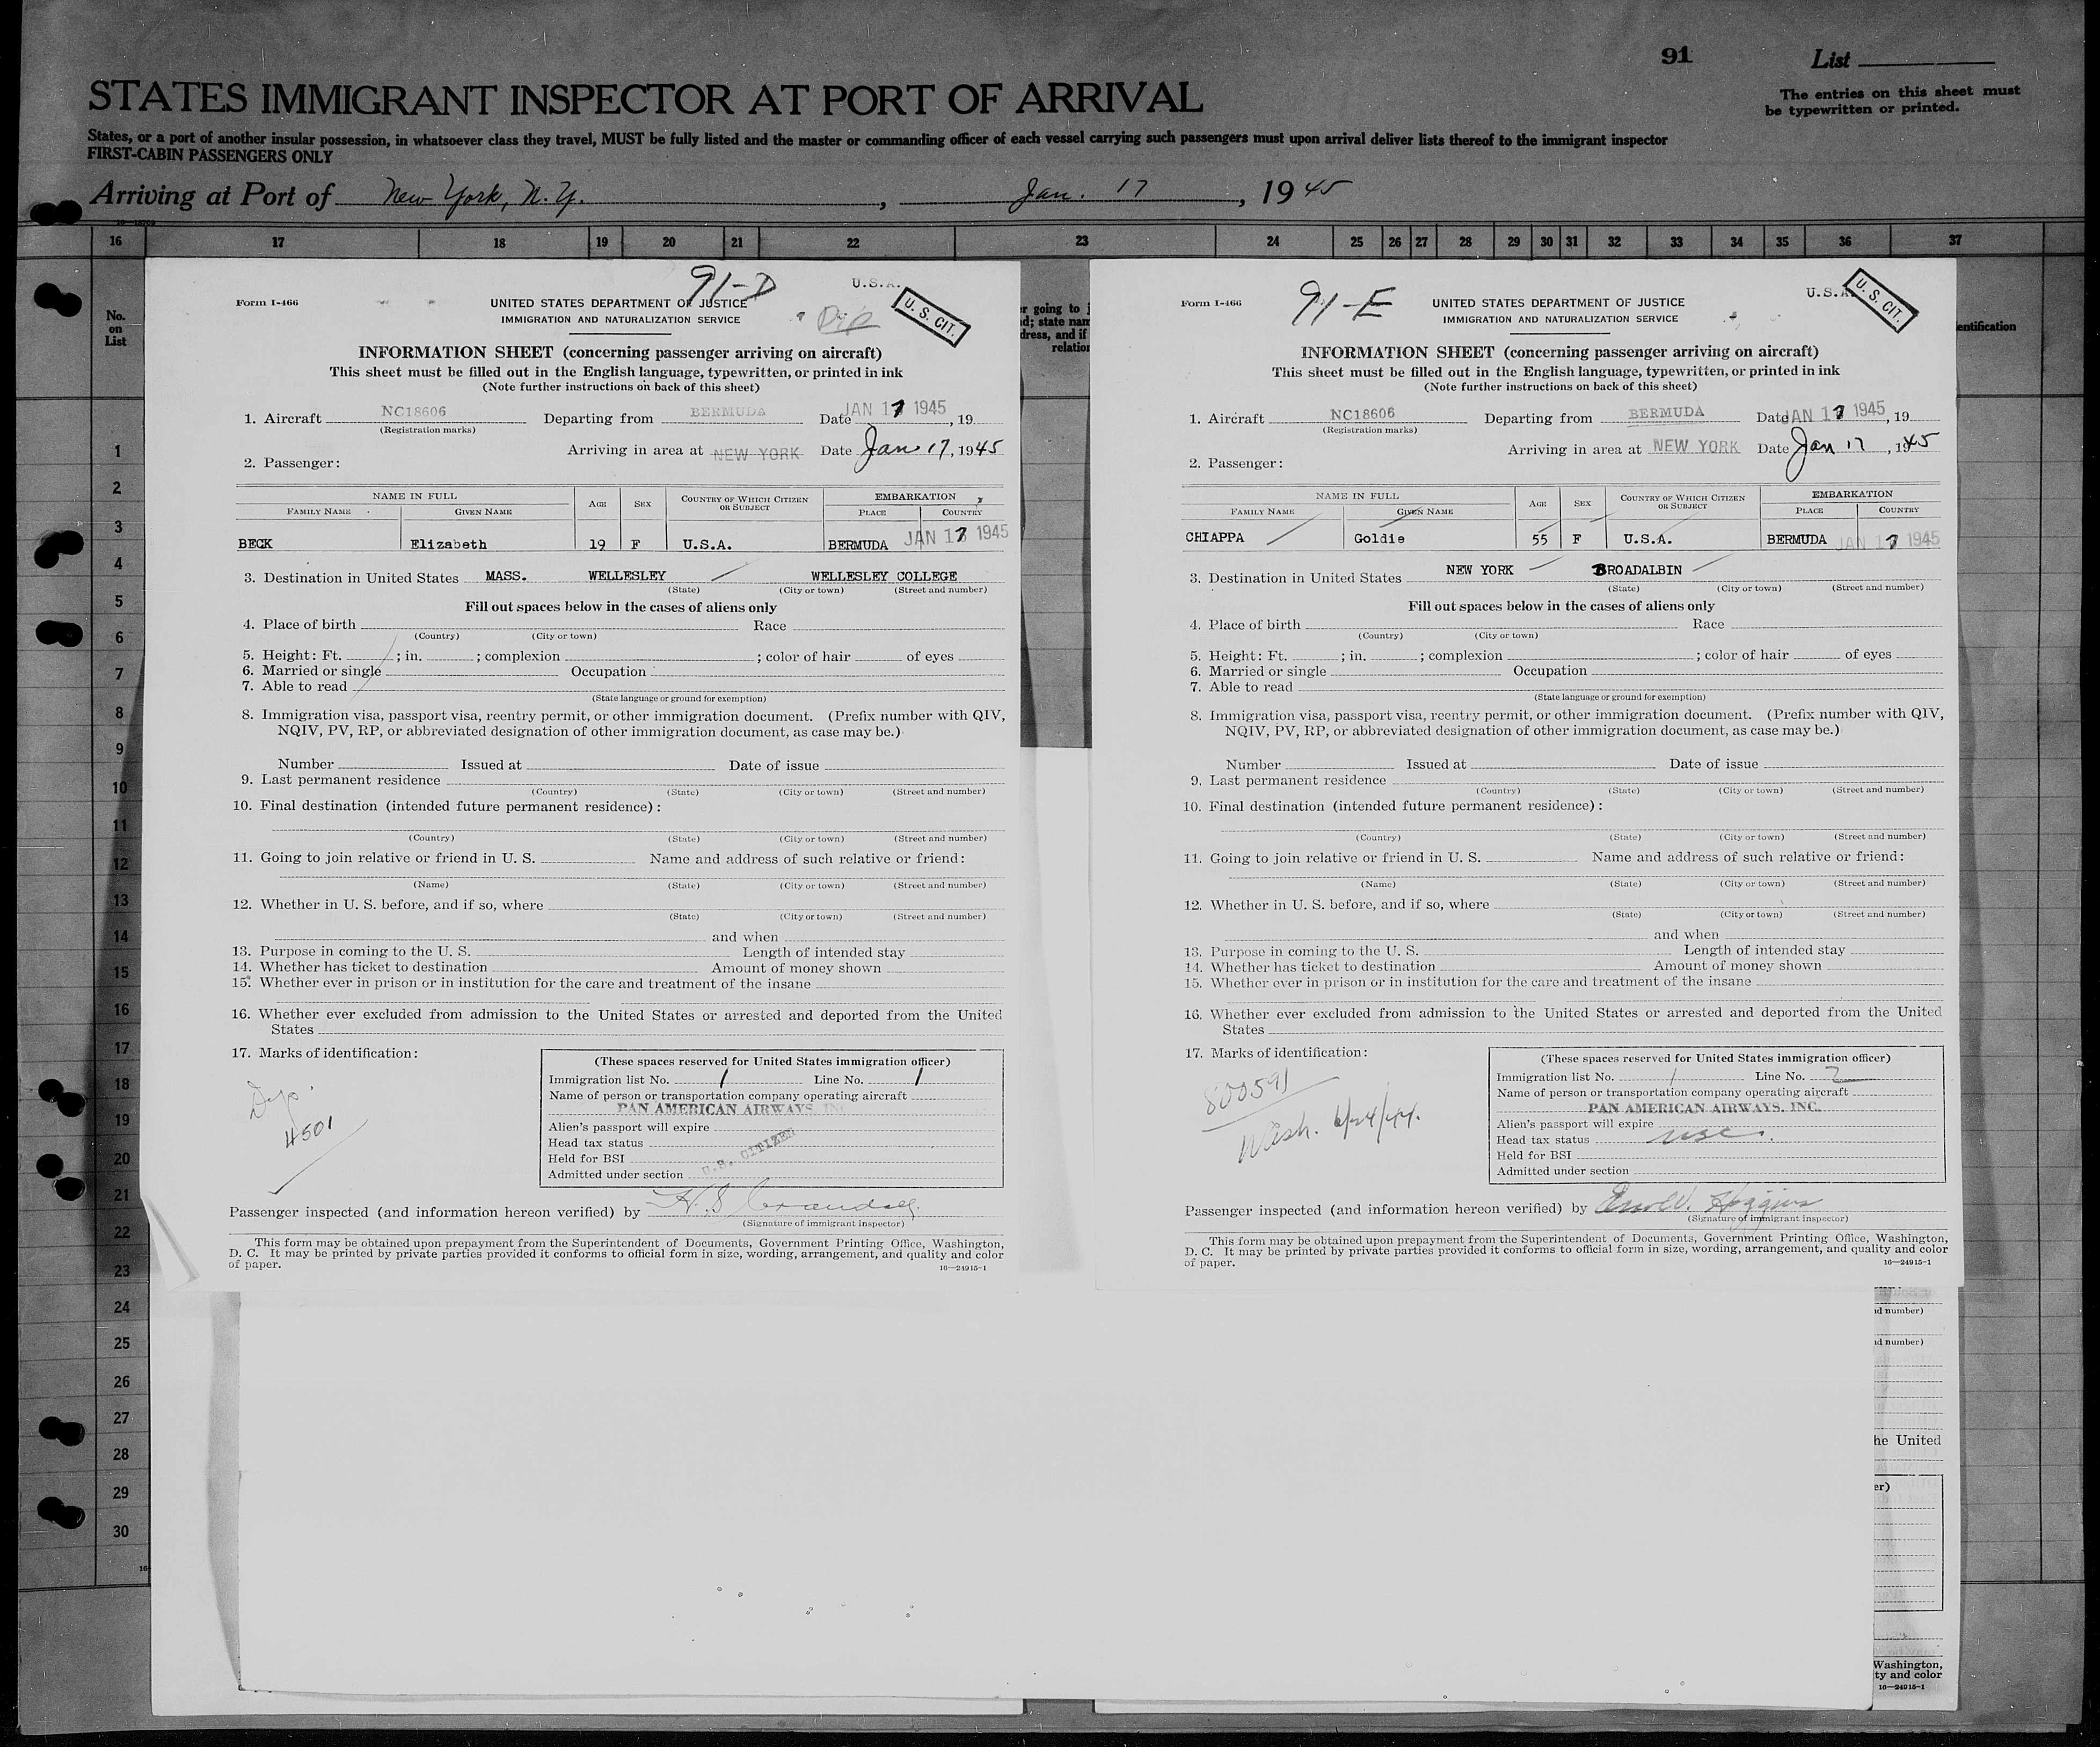 91
List
STATES IMMIGRANT INSPECTOR AT PORT OF ARRIVAL
The entries on this sheet must
be typewritten or printed.
States, or a port of another insular possession, in whatsoever class they travel, MUST be fully listed and the master or commanding officer of each vessel carrying such passengers must upon arrival deliver lists thereof to the immigrant inspector
FIRST-CABIN PASSENGERS ONLY
Arriving at Port of New York, N.Y., Jan. 17, 1945
16 17 18 19 20 21 22 23 24 25 26 27 28 29 30 31 32 33 34 35 36 37
No.
on
List
1
2
3
4
5
6
7
8
9
10
11
12
13
14
15
16
17
18
19
20
21
22
23
24
25
26
27
28
29
30
91-D
U.S.A.
Form I-466
UNITED STATES DEPARTMENT OF JUSTICE
IMMIGRATION AND NATURALIZATION SERVICE
Dip
U. S. CIT.
INFORMATION SHEET (concerning passenger arriving on aircraft)
This sheet must be filled out in the English language, typewritten, or printed in ink
(Note further instructions on back of this sheet)
1. Aircraft NC18606 Departing from BERMUDA Date JAN 17 1945, 19
(Registration marks)
Arriving in area at NEW YORK Date Jan 17, 1945
2. Passenger:
NAME IN FULL AGE SEX COUNTRY OF WHICH CITIZEN OR SUBJECT EMBARKATION
FAMILY NAME GIVEN NAME PLACE COUNTRY
BECK Elizabeth 19 F U.S.A. BERMUDA JAN 17 1945
3. Destination in United States MASS. WELLESLEY WELLESLEY COLLEGE
(State) (City or town) (Street and number)
Fill out spaces below in the cases of aliens only
4. Place of birth Race
(Country) (City or town)
5. Height: Ft. ; in. ; complexion ; color of hair of eyes
6. Married or single Occupation
7. Able to read
(State language or ground for exemption)
8. Immigration visa, passport visa, reentry permit, or other immigration document. (Prefix number with QIV,
NQIV, PV, RP, or abbreviated designation of other immigration document, as case may be.)
Number Issued at Date of issue
9. Last permanent residence
(Country) (State) (City or town) (Street and number)
10. Final destination (intended future permanent residence):
(Country) (State) (City or town) (Street and number)
11. Going to join relative or friend in U. S. Name and address of such relative or friend:
(Name) (State) (City or town) (Street and number)
12. Whether in U. S. before, and if so, where
(State) (City or town) (Street and number)
and when
13. Purpose in coming to the U. S. Length of intended stay
14. Whether has ticket to destination Amount of money shown
15. Whether ever in prison or in institution for the care and treatment of the insane
16. Whether ever excluded from admission to the United States or arrested and deported from the United
States
17. Marks of identification:
4501
(These spaces reserved for United States immigration officer)
Immigration list No. 1 Line No. 1
Name of person or transportation company operating aircraft
PAN AMERICAN AIRWAYS, INC
Alien's passport will expire
Head tax status
Held for BSI
Admitted under section U.S. CITIZEN
Passenger inspected (and information hereon verified) by H. S. Crandall
(Signature of immigrant inspector)
This form may be obtained upon prepayment from the Superintendent of Documents, Government Printing Office, Washington,
D. C. It may be printed by private parties provided it conforms to official form in size, wording, arrangement, and quality and color
of paper.
16—24915-1
91-E
U.S.A.
Form I-466
UNITED STATES DEPARTMENT OF JUSTICE
IMMIGRATION AND NATURALIZATION SERVICE
U. S. CIT.
INFORMATION SHEET (concerning passenger arriving on aircraft)
This sheet must be filled out in the English language, typewritten, or printed in ink
(Note further instructions on back of this sheet)
1. Aircraft NC18606 Departing from BERMUDA Date JAN 17 1945, 19
(Registration marks)
Arriving in area at NEW YORK Date Jan 17, 1945
2. Passenger:
NAME IN FULL AGE SEX COUNTRY OF WHICH CITIZEN OR SUBJECT EMBARKATION
FAMILY NAME GIVEN NAME PLACE COUNTRY
CHIAPPA Goldie 55 F U.S.A. BERMUDA JAN 17 1945
3. Destination in United States NEW YORK BROADALBIN
(State) (City or town) (Street and number)
Fill out spaces below in the cases of aliens only
4. Place of birth Race
(Country) (City or town)
5. Height: Ft. ; in. ; complexion ; color of hair of eyes
6. Married or single Occupation
7. Able to read
(State language or ground for exemption)
8. Immigration visa, passport visa, reentry permit, or other immigration document. (Prefix number with QIV,
NQIV, PV, RP, or abbreviated designation of other immigration document, as case may be.)
Number Issued at Date of issue
9. Last permanent residence
(Country) (State) (City or town) (Street and number)
10. Final destination (intended future permanent residence):
(Country) (State) (City or town) (Street and number)
11. Going to join relative or friend in U. S. Name and address of such relative or friend:
(Name) (State) (City or town) (Street and number)
12. Whether in U. S. before, and if so, where
(State) (City or town) (Street and number)
and when
13. Purpose in coming to the U. S. Length of intended stay
14. Whether has ticket to destination Amount of money shown
15. Whether ever in prison or in institution for the care and treatment of the insane
16. Whether ever excluded from admission to the United States or arrested and deported from the United
States
17. Marks of identification:
800591
Wash. 6/24/44.
(These spaces reserved for United States immigration officer)
Immigration list No. 1 Line No. 2
Name of person or transportation company operating aircraft
PAN AMERICAN AIRWAYS, INC.
Alien's passport will expire
Head tax status usc.
Held for BSI
Admitted under section
Passenger inspected (and information hereon verified) by Higgins
(Signature of immigrant inspector)
This form may be obtained upon prepayment from the Superintendent of Documents, Government Printing Office, Washington,
D. C. It may be printed by private parties provided it conforms to official form in size, wording, arrangement, and quality and color
of paper.
16—24915-1
going to
state
relation
entification
number)
number)
he United
er)
Washington,
ty and color
16—24915-1